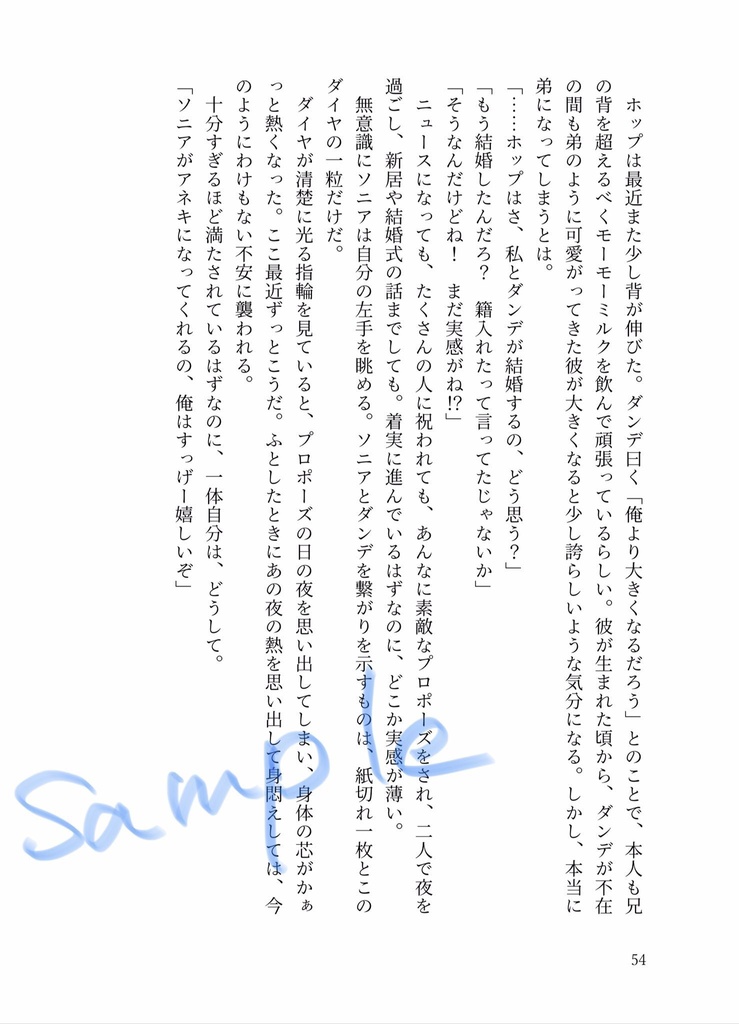 ホップは最近また少し背が伸びた。ダンデ曰く「俺より大きくなるだろう」とのことで、本人も兄
の背を超えるべくモーモーミルクを飲んで頑張っているらしい。彼が生まれた頃から、ダンデが不在
の間も弟のように可愛がってきた彼が大きくなると少し誇らしいような気分になる。しかし、本当に
弟になってしまうとは。
「……ホップはさ、私とダンデが結婚するの、どう思う？」
「もう結婚したんだろ？　籍入れたって言ってたじゃないか」
「そうなんだけどね！　まだ実感がね!?」
ニュースになっても、たくさんの人に祝われても、あんなに素敵なプロポーズをされ、二人で夜を
過ごし、新居や結婚式の話までしても。着実に進んでいるはずなのに、どこか実感が薄い。
無意識にソニアは自分の左手を眺める。ソニアとダンデを繋がりを示すものは、紙切れ一枚とこの
ダイヤの一粒だけだ。
ダイヤが清楚に光る指輪を見ていると、プロポーズの日の夜を思い出してしまい、身体の芯がかぁ
っと熱くなった。ここ最近ずっとこうだ。ふとしたときにあの夜の熱を思い出して身悶えしては、今
のようにわけもない不安に襲われる。
十分すぎるほど満たされているはずなのに、一体自分は、どうして。
「ソニアがアネキになってくれるの、俺はすっげー嬉しいぞ」
54
sample